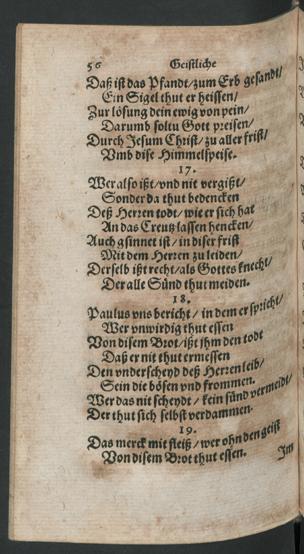 56 Geistliche
Daß ist das Pfandt/ zum Erb gesandt/
Ein Sigel thut er heissen/
Zur lösung dein ewig von pein/
Darumb soltu Gott preisen/
Durch Jesum Christ/ zu aller frist/
Vmb dise Himmelspeise.
17.
Wer also ißt/ vnd nit vergißt/
Sonder da thut bedencken
Deß Herren todt/ wie er sich hat
An das Creutz lassen hencken/
Auch gsinnet ist/ in diser frist
Mit dem Herren zu leiden/
Derselb ißt recht/ als Gottes knecht/
Der alle Sünd thut meiden.
18.
Paulus vns bericht/ in dem er spricht/
Wer vnwirdig thut essen
Von disem Brot/ ißt jhm den todt
Daß er nit thut ermessen
Den vnderscheyd deß Herren leib/
Sein die bösen vnd frommen.
Wer das nit scheydt/ kein sünd vermeidt/
Der thut sich selbst verdammen.
19.
Das merck mit fleiß/ wer ohn den geist
Von disem Brot thut essen.
Im